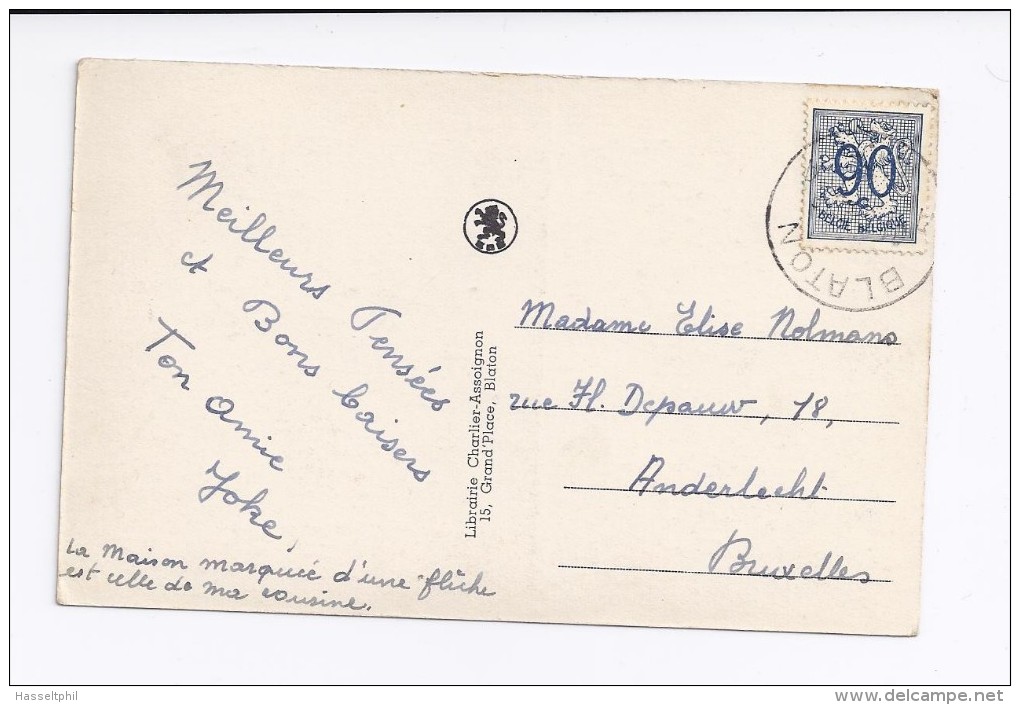 Meilleurs Pensées
et Bons baisers
Ton amie
Yoke,
La maison marquée d'une flêche
est celle de ma cousine.
Librairie Charlier-Assoignon
15, Grand'Place, Blaton
90
BELGIE BELGIQUE
BLATON
Madame Elise Nolmans
rue H. Depauw, 18,
Anderlecht
Bruxelles
Hasseltphil
www.delcampe.net